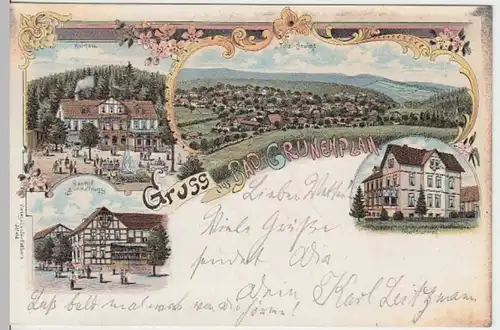 Kurhaus.
Total-Ansicht.
Gruss aus BAD GRÜNENPLAN
Gasthof
Lieber Walter!
Viele Grüße
sendet Dir
Dein Karl Leitzmann
Laß bald mal was von dir hören!